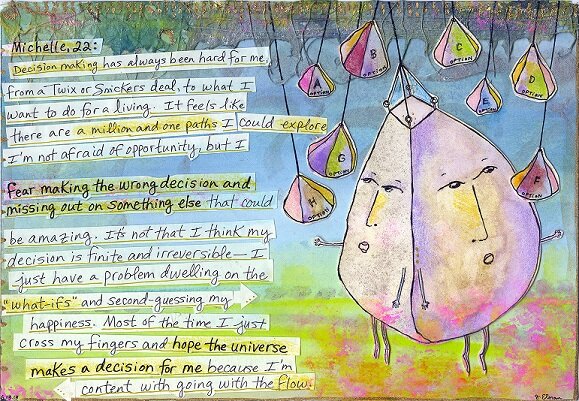 Michelle, 22:
Decision making has always been hard for me,
from a Twix or Smickers deal, to what I
want to do for a living. It feels like
there are a million and one paths I could explore
I'm not afraid of opportunity, but I
fear making the wrong decision and
missing out on something else that could
be amazing. It's not that I think my
decision is finite and irreversible — I
just have a problem dwelling on the
"what-ifs" and second-guessing my
happiness. Most of the time I just
cross my fingers and hope the universe
makes a decision for me because I'm
content with going with the flow.
A
OPTION
B
OPTION
C
OPTION
D
OPTION
E
OPTION
F
OPTION
G
OPTION
H
OPTION